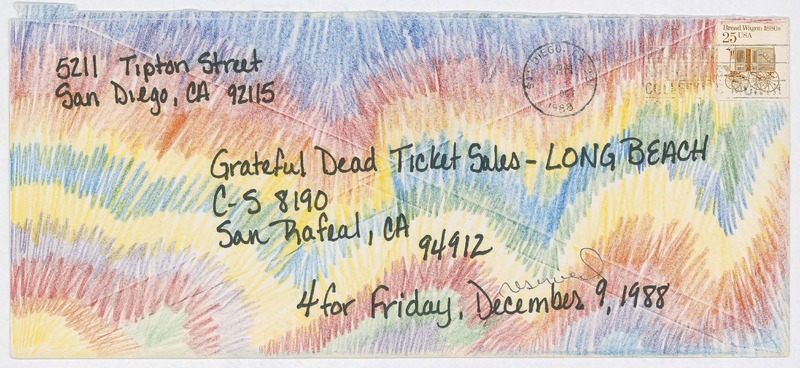 5211 Tipton Street
San Diego, CA 92115
Bread Wagon 1880s
25 USA
SAN DIEGO
1988
Grateful Dead Ticket Sales - LONG BEACH
C-S 8190
San Rafeal, CA
94912
reserved
4 for Friday, December 9, 1988